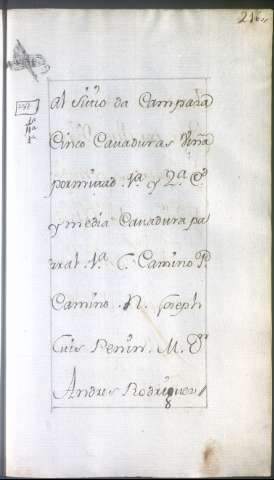 216
al Sitio da Campara
Cinco Cauaduras Viña
pormitad .1ª. y 2ª. C.
y media Cauadura pa
rral .1ª. C. Camino P.
Camino . N. Joseph
Luis Penin . M. D.
Andres Rodriguez